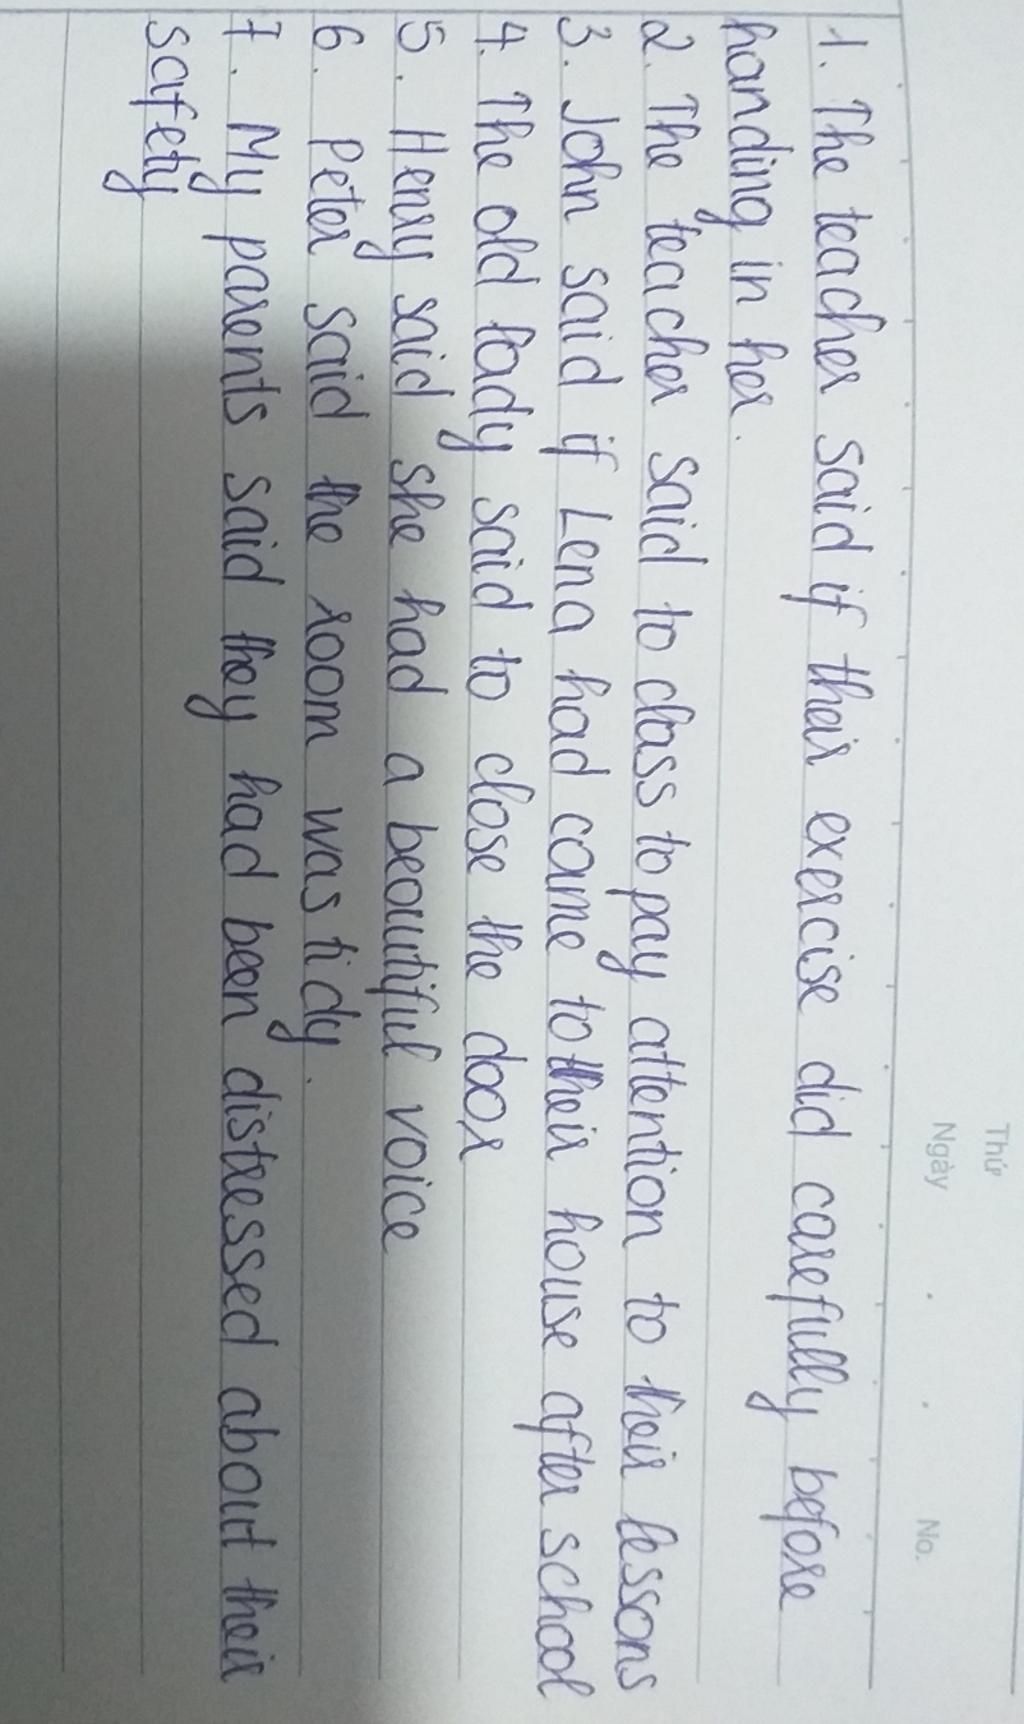 Thứ
Ngày . . No.
1. The teacher said if their exercise did carefully before
handing in her.
2. The teacher said to class to pay attention to their lessons
3. John said if Lena had came to their house after school
4. The old lady said to close the door
5. Henry said she had a beautiful voice
6. Peter said the room was tidy.
7. My parents said they had been distressed about their
safety